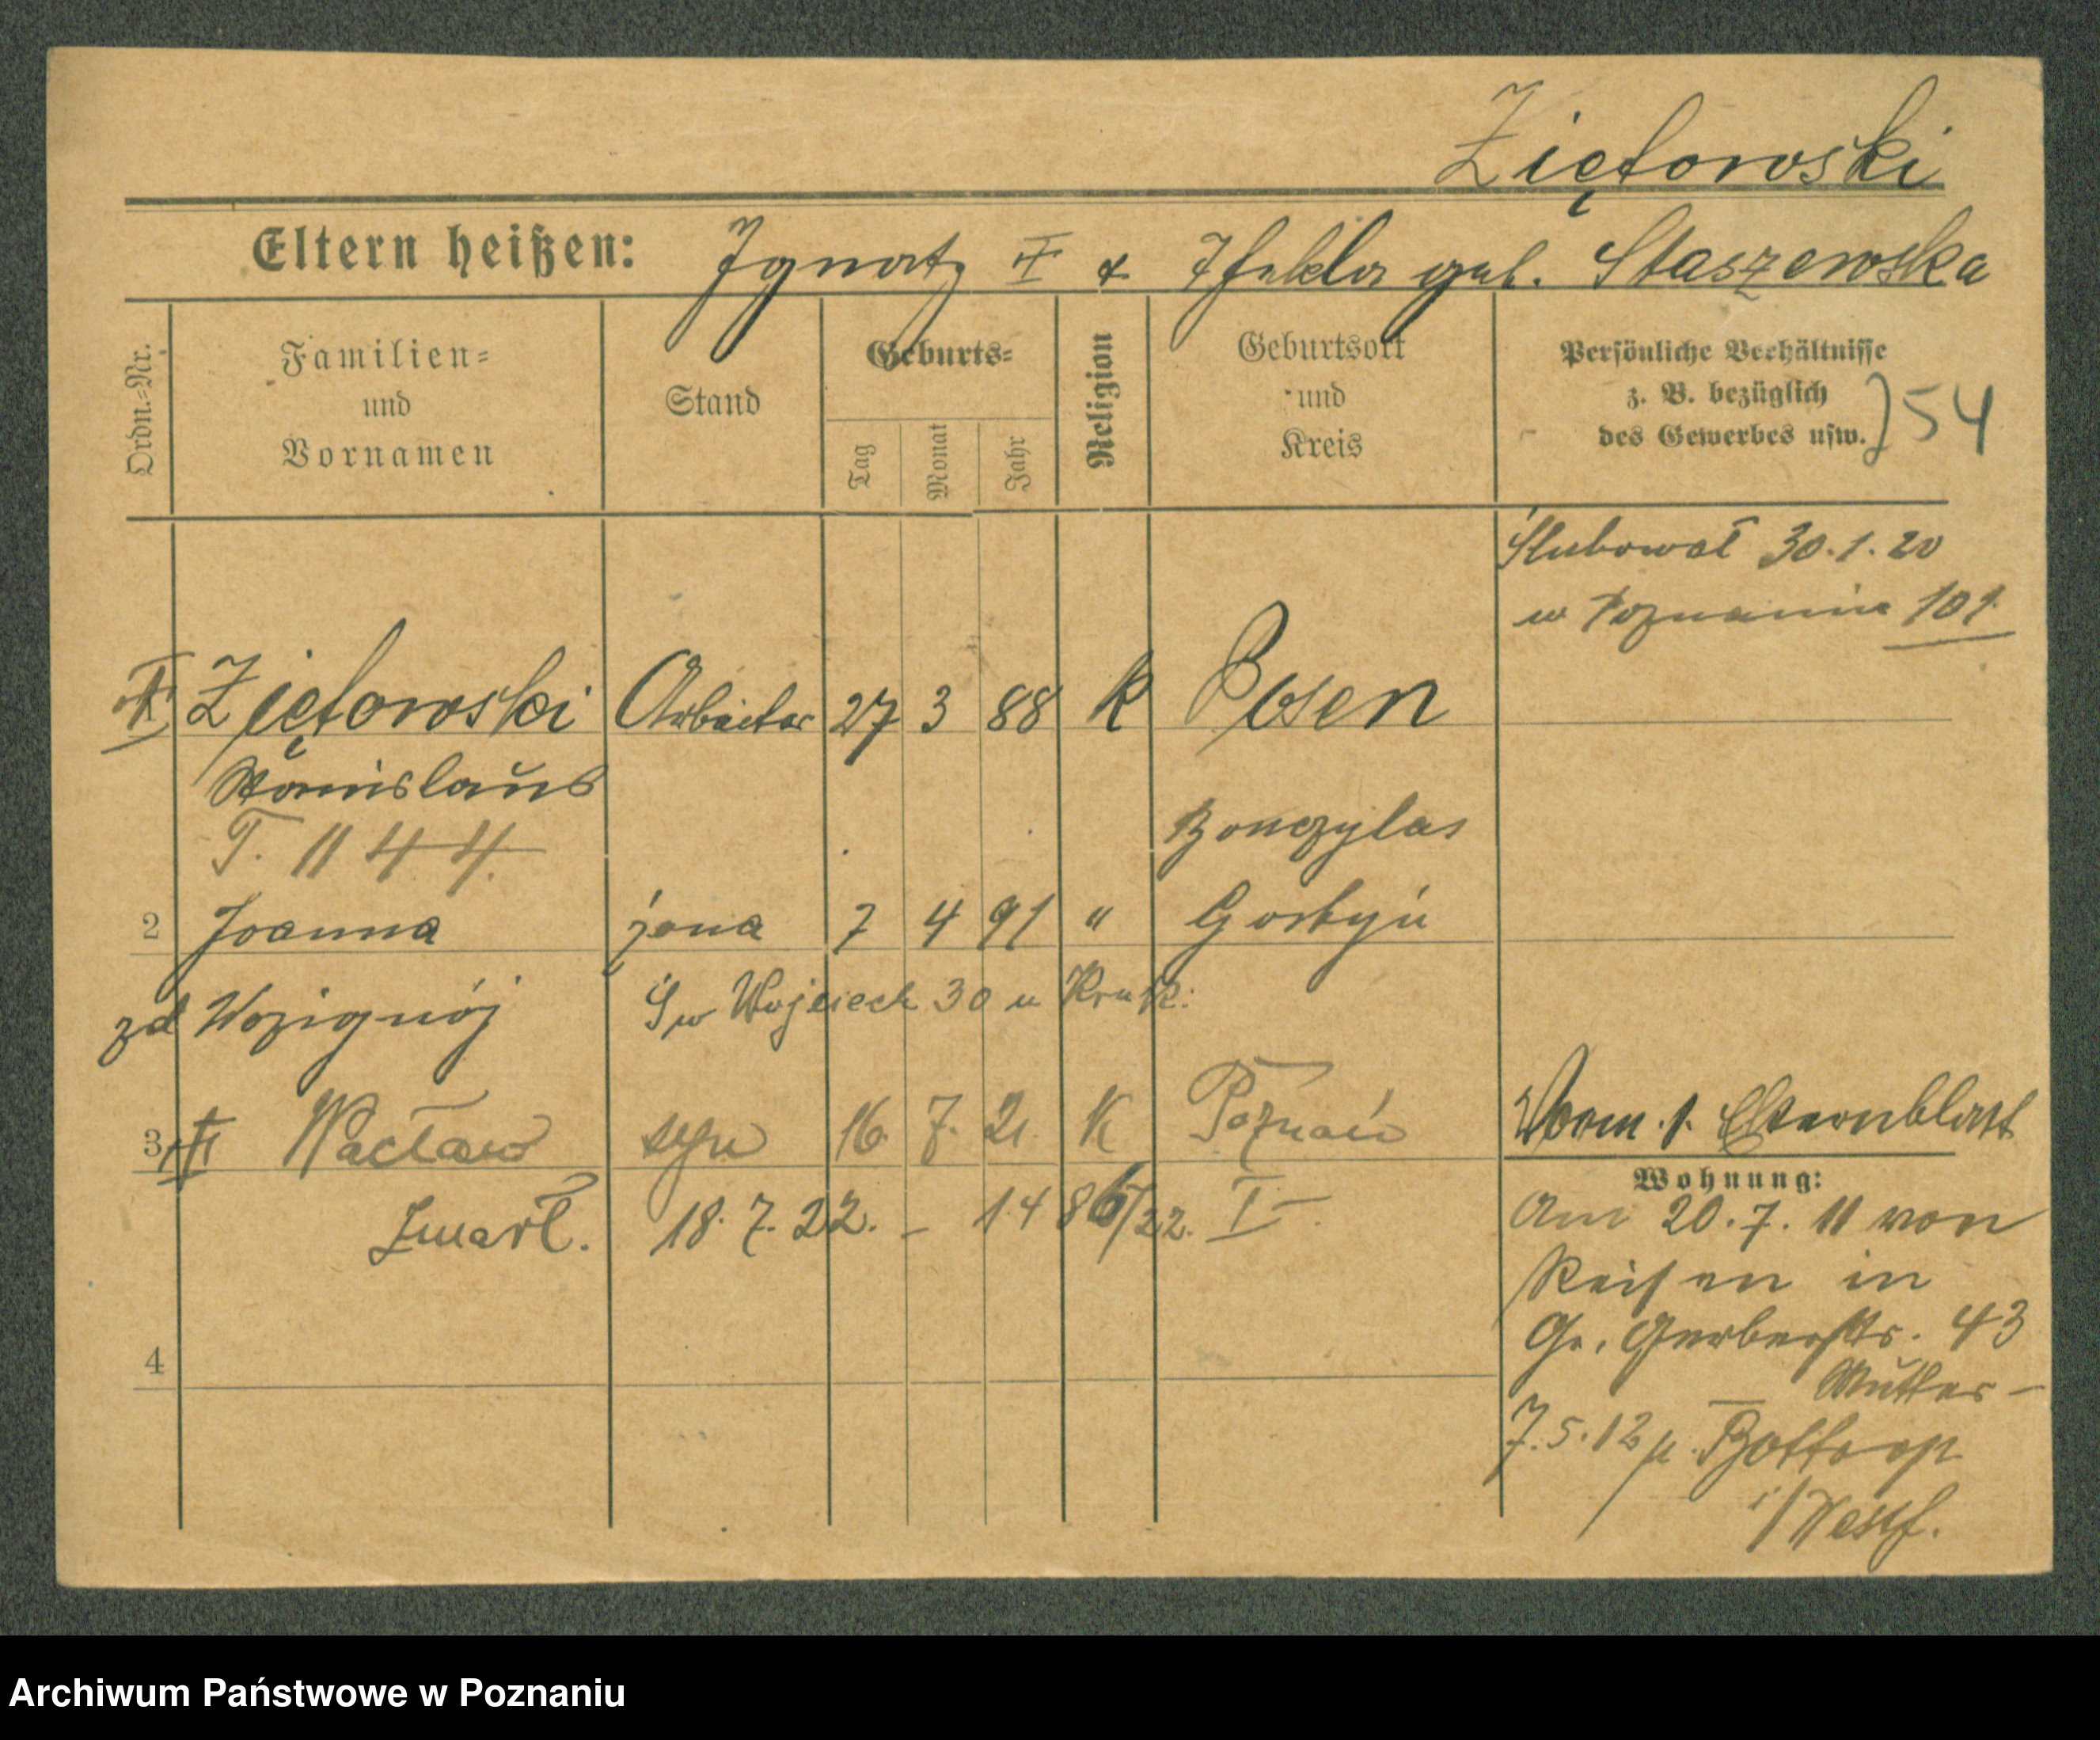 Ziętowski
Eltern heißen: Ignatz † & Thekla geb. Staszewska
Ordn.-Nr.
Familien-
und
Vornamen
Stand
Geburts-
Tag
Monat
Jahr
Religion
Geburtsort
und
Kreis
Persönliche Verhältnisse
z. B. bezüglich
des Gewerbes usw.
J 54
Ślubował 30.1.20
w Poznaniu 101
Ziętowski Arbeiter 27 3 88 k Posen
Stanislaus
T. 1144.
2 Joanna żona 7 4 91 " Gostyń
zd Wozignój Św Wojciech 30 u
3 Wacław syn 16. 7. 21. K Poznań
Zmarł. 18. 7. 22. – 1486/22. I
4
Vorm. 1. Elternblatt
Wohnung:
Am 20.7.11 von
Reisen in
Gr. Gerberstr. 43
Mutter –
7.5.12 n. Bottrop
i/Westf.
Archiwum Państwowe w Poznaniu